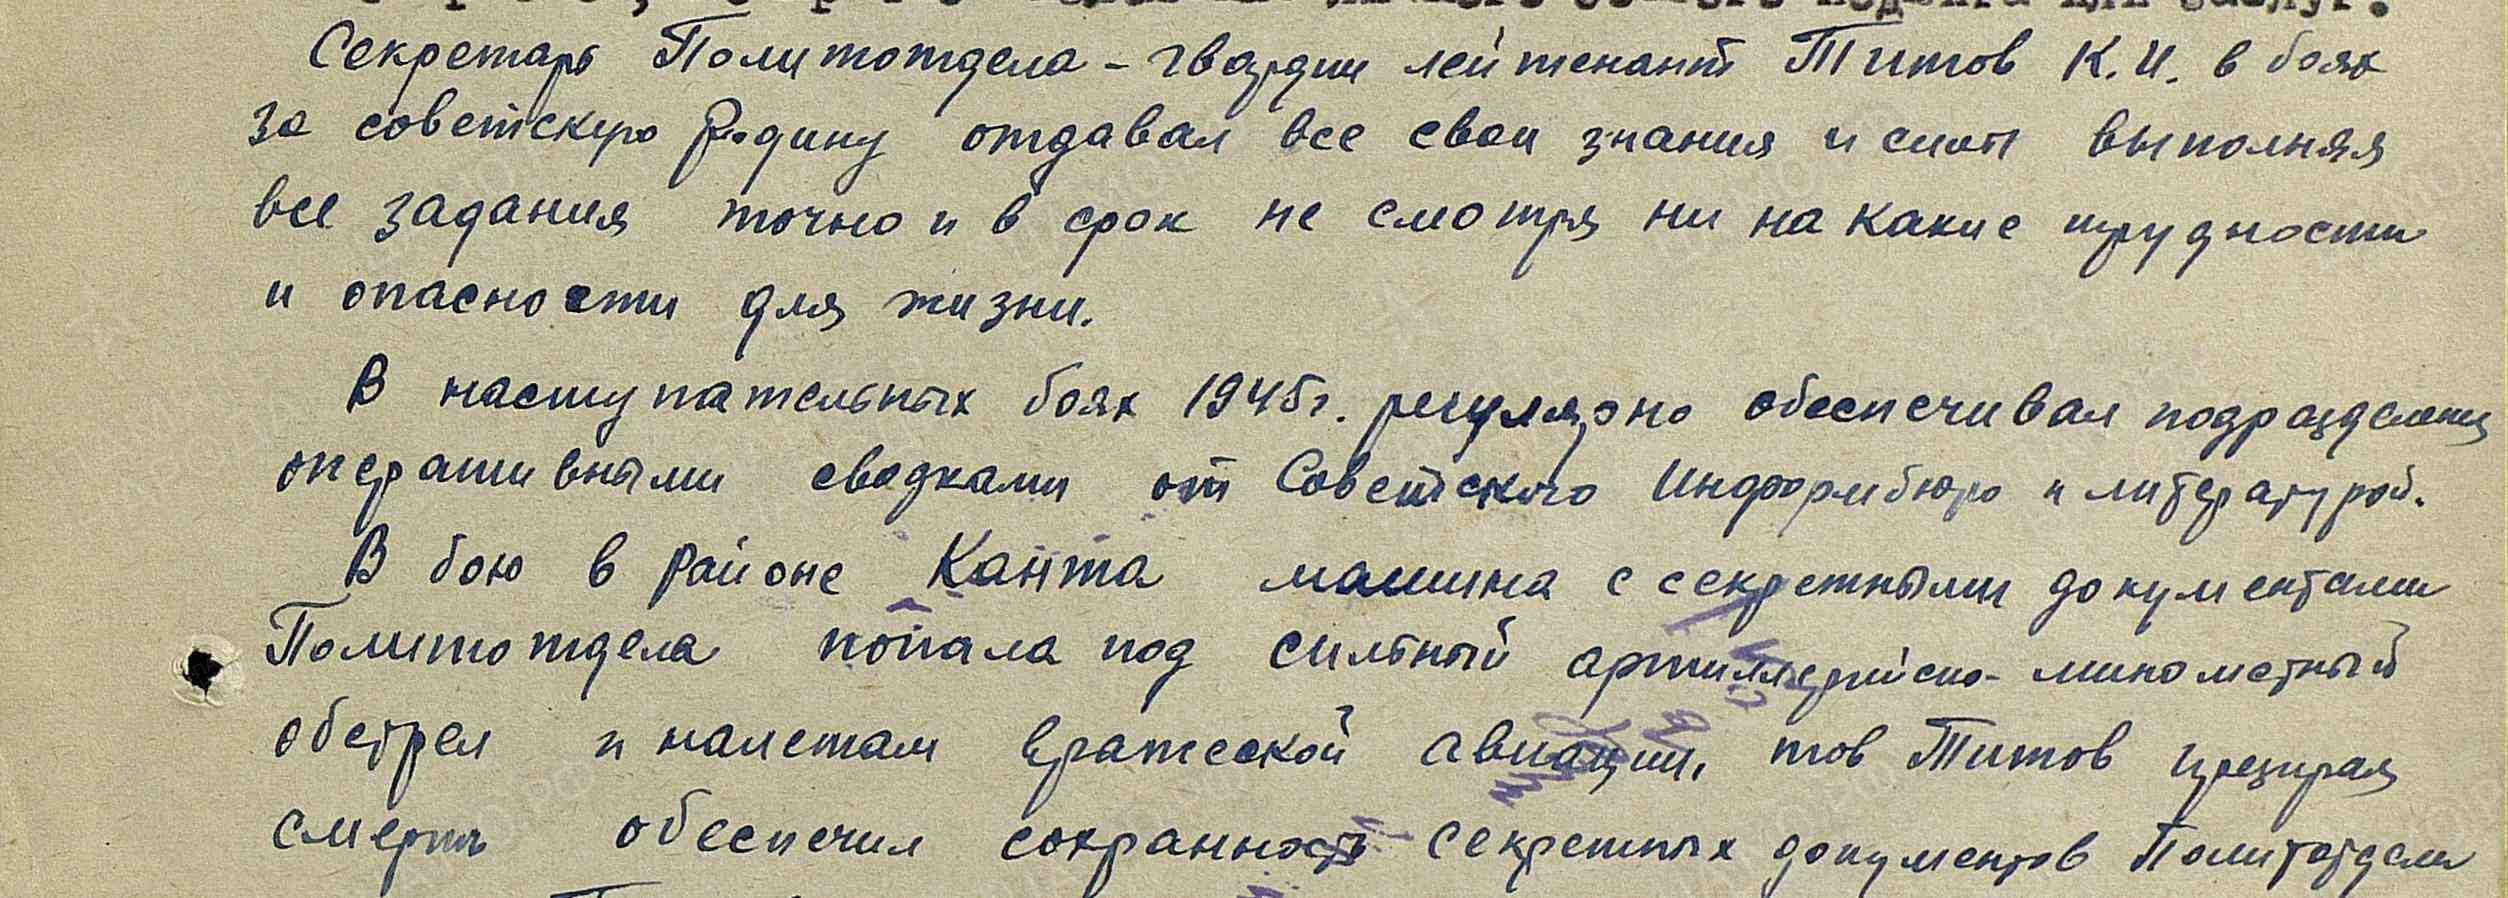 Секретарь Политотдела - гвардии лейтенант Титов К.И. в боях
за советскую Родину отдавал все свои знания и силы выполняя
все задания точно и в срок не смотря ни на какие трудности
и опасности для жизни.
В наступательных боях 1945г. регулярно обеспечивал подразделения
оперативными сводками от Советского Информбюро и литературой.
В бою в районе Канта машина с секретными документами
Политотдела попала под сильный артиллерийско-минометный
обстрел и налетам вражеской авиации, тов Титов презирая
смерть обеспечил сохранность секретных документов Политотдела